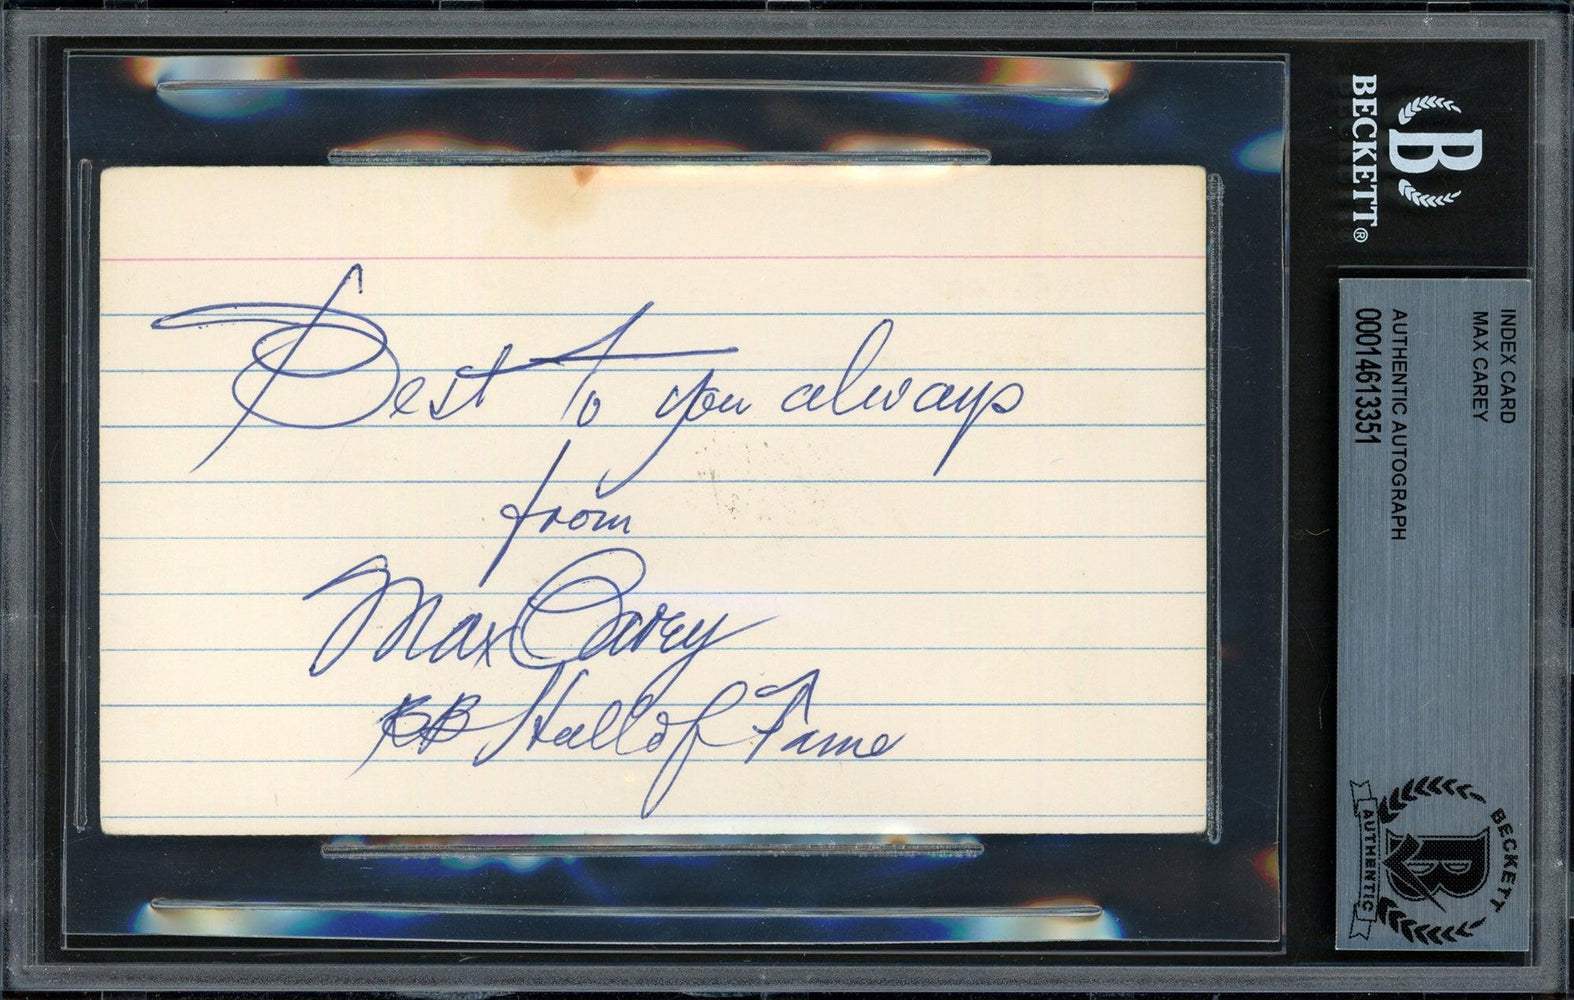 Best to you always
from
Max Carey
BB Hall of Fame
BECKETT®
B
INDEX CARD
MAX CAREY
AUTHENTIC AUTOGRAPH
00014613351
BECKETT
B
AUTHENTIC